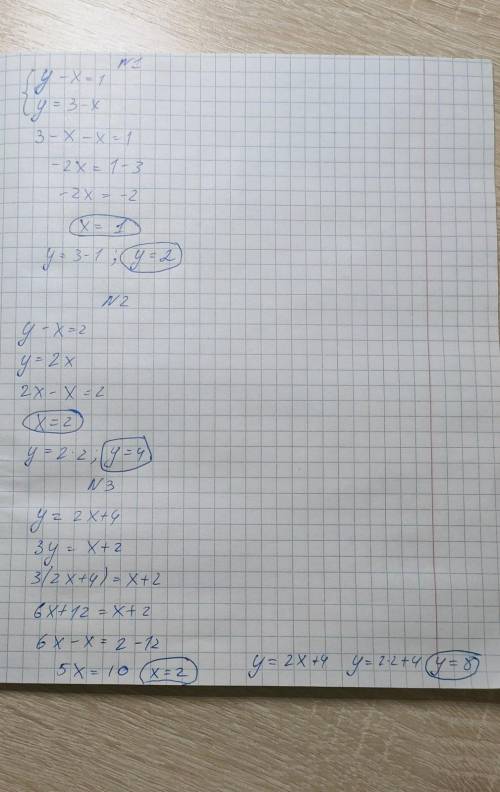 N1
y - x = 1
y = 3 - x
3 - x - x = 1
-2x = 1 - 3
-2x = -2
x = 1
y = 3 - 1 ; y = 2
N2
y - x = 2
y = 2x
2x - x = 2
x = 2
y = 2·2 ; y = 4
N3
y = 2x+4
3y = x+2
3(2x+4) = x+2
6x+12 = x+2
6x - x = 2 - 12
5x = 10 x = 2 y = 2x+4 y = 2·2+4 y = 8